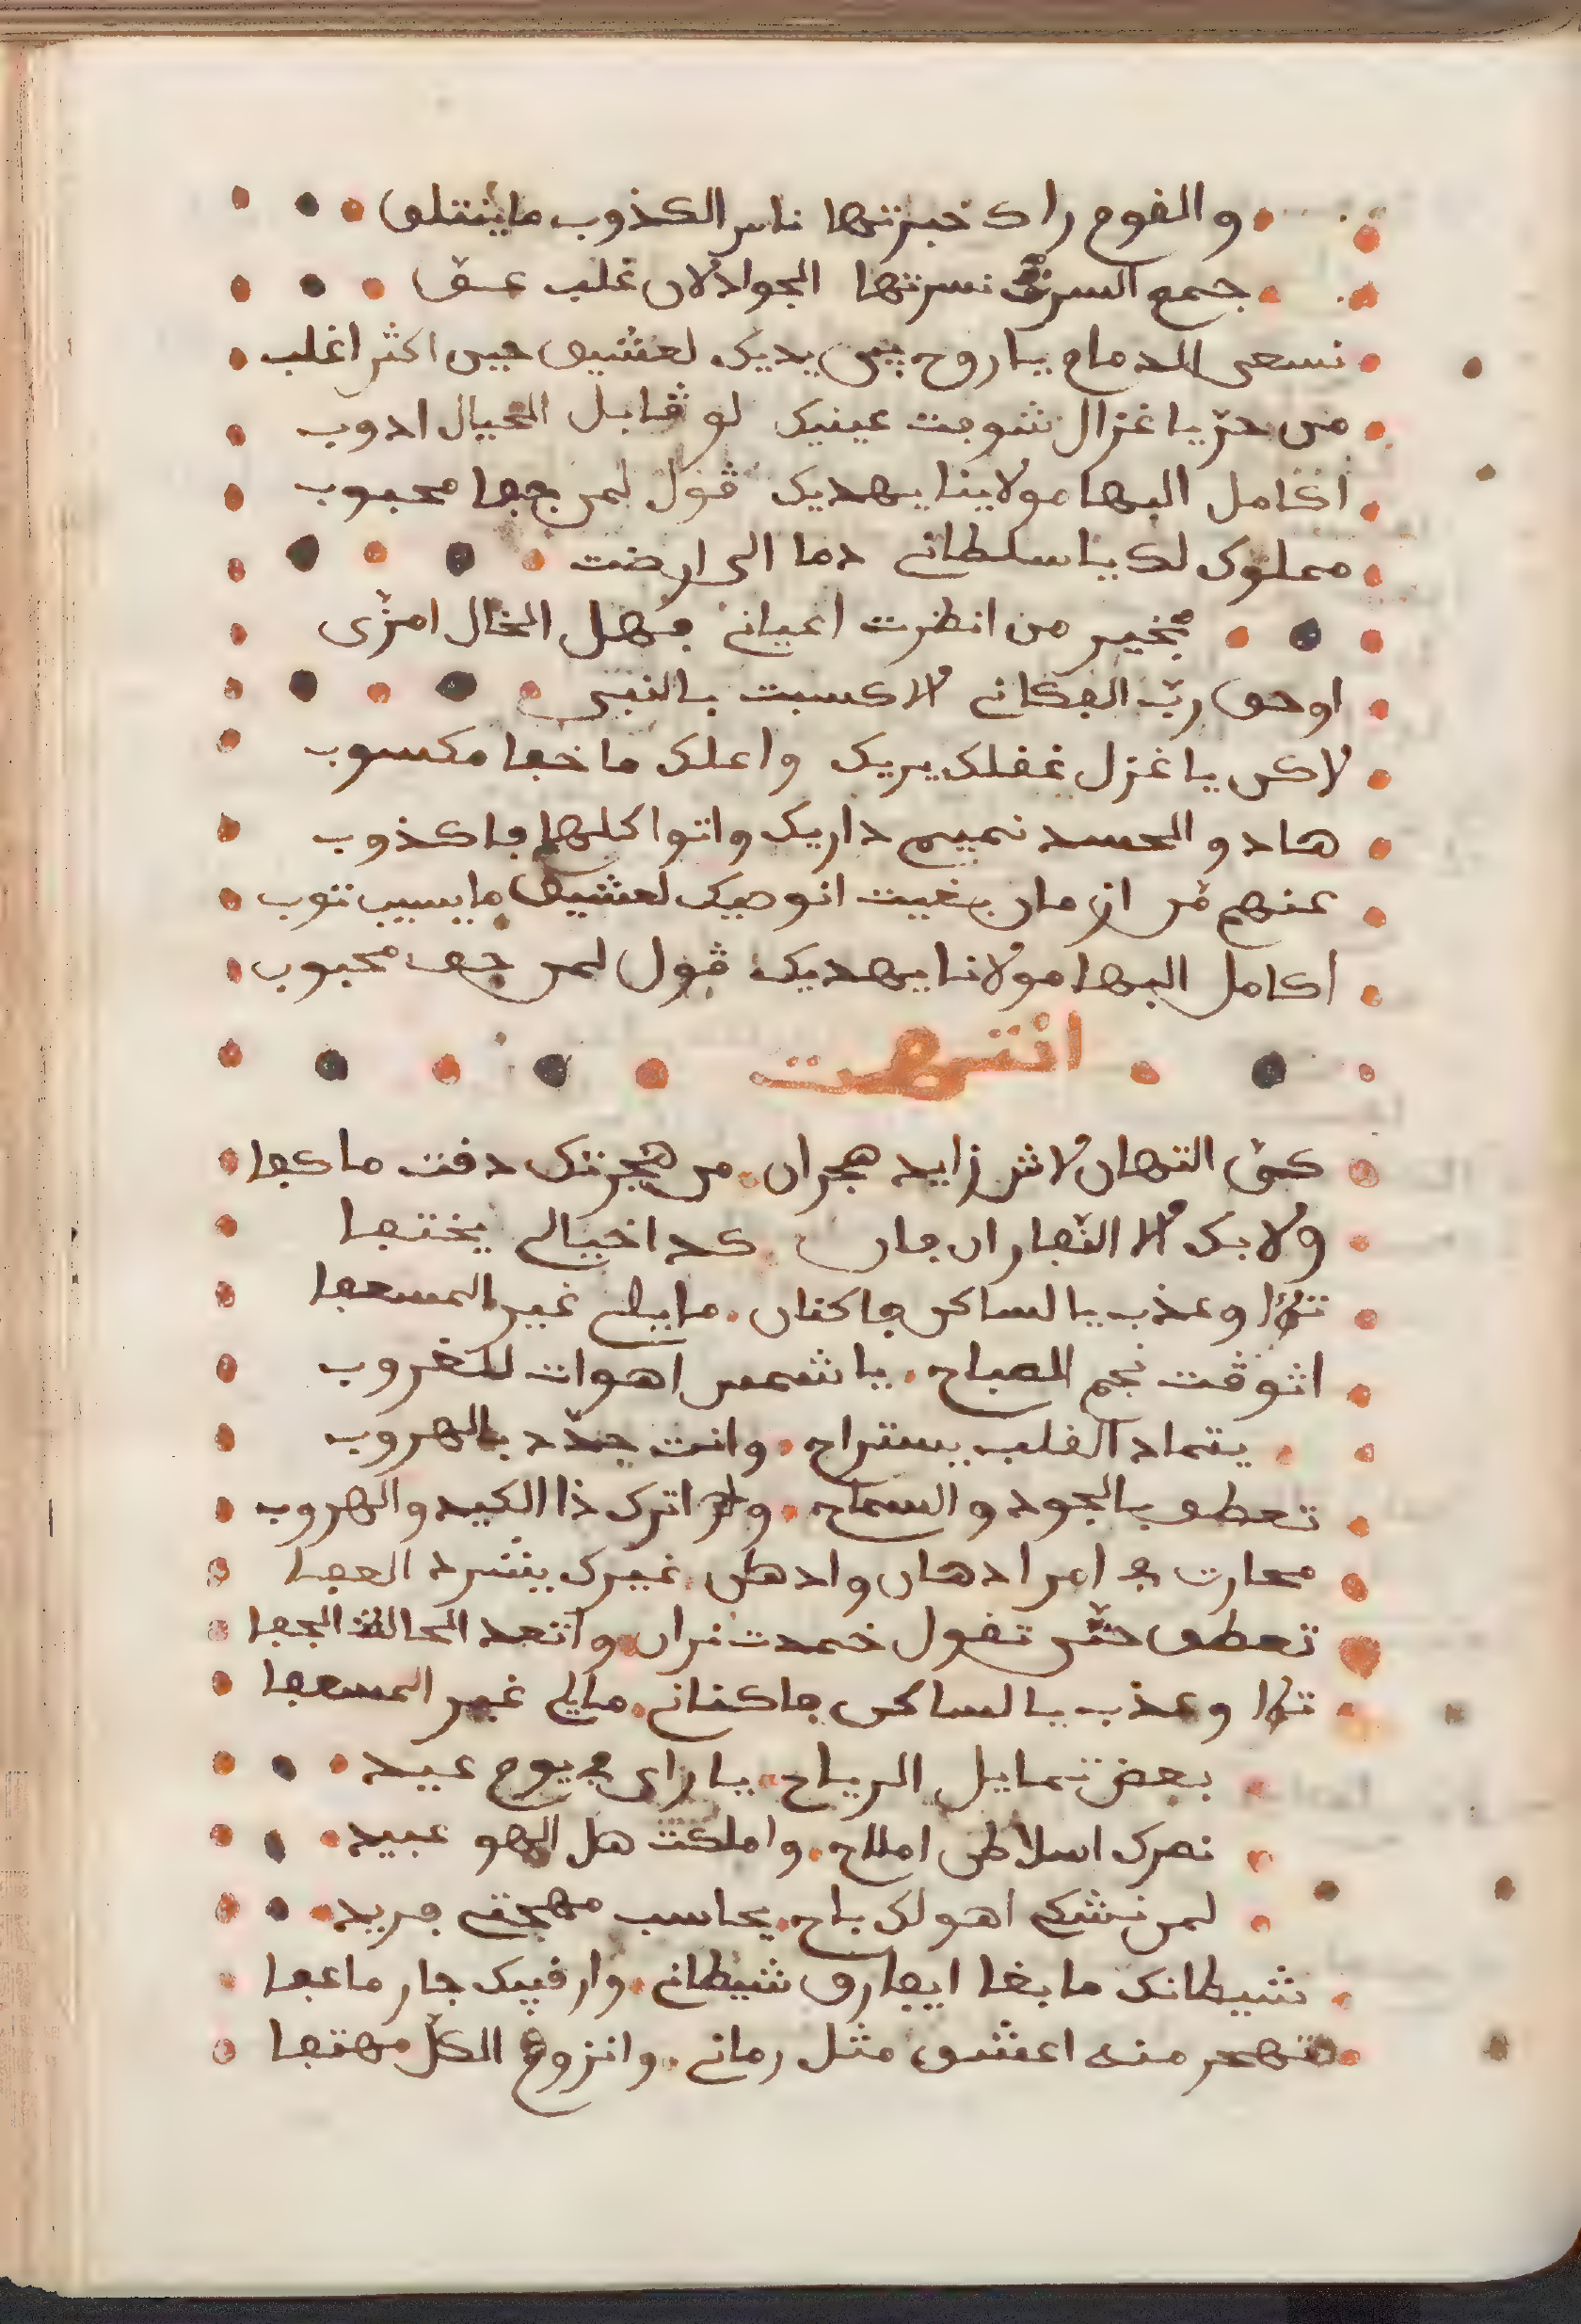 والقوم راك خبرتها ناس الكذوب ماينتلى
جمع السر نسرتها الجواد لان غلب عنق
نسعى الدمام ياروح بين يديك لعشيق حين اكثر اغلب
من حر يا غزال شوفت عينيك لو قابل الخيال ادوب
اكامل البها مولاينا يهديك قول لمن جفا محبوب
مملوك لك يا سلطاني دما الى ارضت
بخير من انظرت اعياني فهل الخال امزى
اوحق رب الفكاني الا كسبت بالنبي
لاكن يا غزل غفلك يريك واعلك ما خفا مكسوب
هاد والحسد نميم داريك واتوا كلها فاكذوب
عنهم قر ازمان بغيت انوصيك لعشيق ما يسيب توب
اكامل البها مولانا يهديك قول لمن جفا محبوب
انتهت
كف التهان لاش زايد هجران من هجرتك دقت ما كفا
ولا بك الا النفار ان فان كد اخيالي يختفا
تلا وعذب يالساكن فاكنان مايلي غير المسعفا
اشوقت نجم الصباح يا شمس اهوات للغروب
يتماد القلب يستراح وانت جدد بالهروب
تعطف بالجود والسماح واترك ذا الكيد والهروب
محارت في امر ادهان وادهل غيرك ينشرد العفا
تعطف حتى تقول خمدت نران واتعد الحالة الجفا
تلا وعذب يالساكن فاكناني مايلي غير المسعفا
بعض تمايل الرياح ياراى في يوم عيد
نصرك اسلاطن املاح واملكت هل الهو عبيد
لمن نشكي اهو لك باح يحاسب مهجتي فريد
شيطانك ما بغا ايفارق شيطاني وارقيبك جار ماعفا
تهجر منه اعشق مثل رماني وانزوع الكل مهتفا